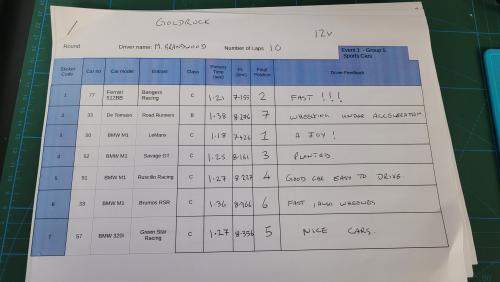 GOLDROCK
12V
Round Driver name: M. BRANDWOOD Number of Laps 10
Event 1 - Group 5
Sports Cars
Sticker Code Car no Car model Entrant Class Primary Time (sec) FL (sec) Final Position Driver Feedback
1 77 Ferrari 512BB Bangers Racing C 1.21 7.155 2 FAST !!!
2 33 De Tomaso Road Runners B 1.38 7 WHEELING UNDER ACCELERATION
3 50 BMW M1 LeMans C 1.18 7.426 1 A JOY!
4 52 BMW M1 Savage GT C 1.25 8.161 3 PLANTED
5 51 BMW M1 Ruscillo Racing C 1.27 4 GOOD CAR EASY TO DRIVE
6 33 BMW M1 Brumos RSR C 1.36 8.966 6 FAST, ALSO
7 57 BMW 320i Green Star Racing C 1.27 8.356 5 NICE CARS.